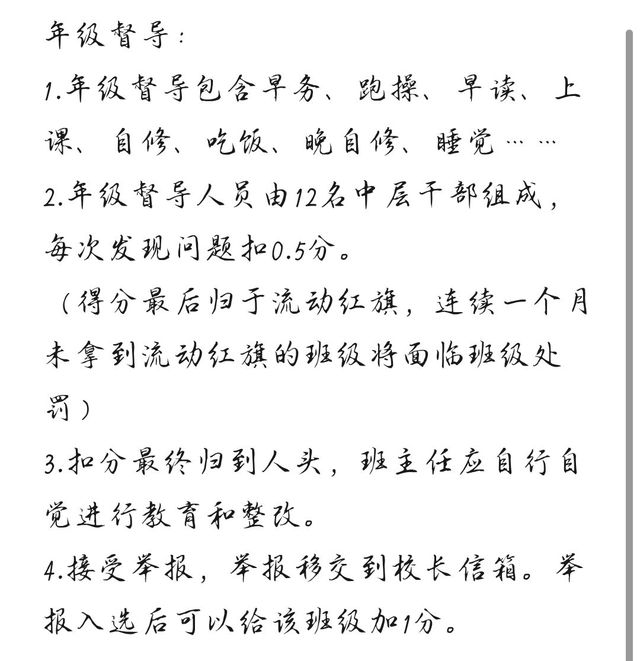 年级督导：
1.年级督导包含早务、跑操、早读、上
课、自修、吃饭、晚自修、睡觉……
2.年级督导人员由12名中层干部组成，
每次发现问题扣0.5分。
（得分最后归于流动红旗，连续一个月
未拿到流动红旗的班级将面临班级处
罚）
3.扣分最终归到人头，班主任应自行自
觉进行教育和整改。
4.接受举报，举报移交到校长信箱。举
报入选后可以给该班级加1分。